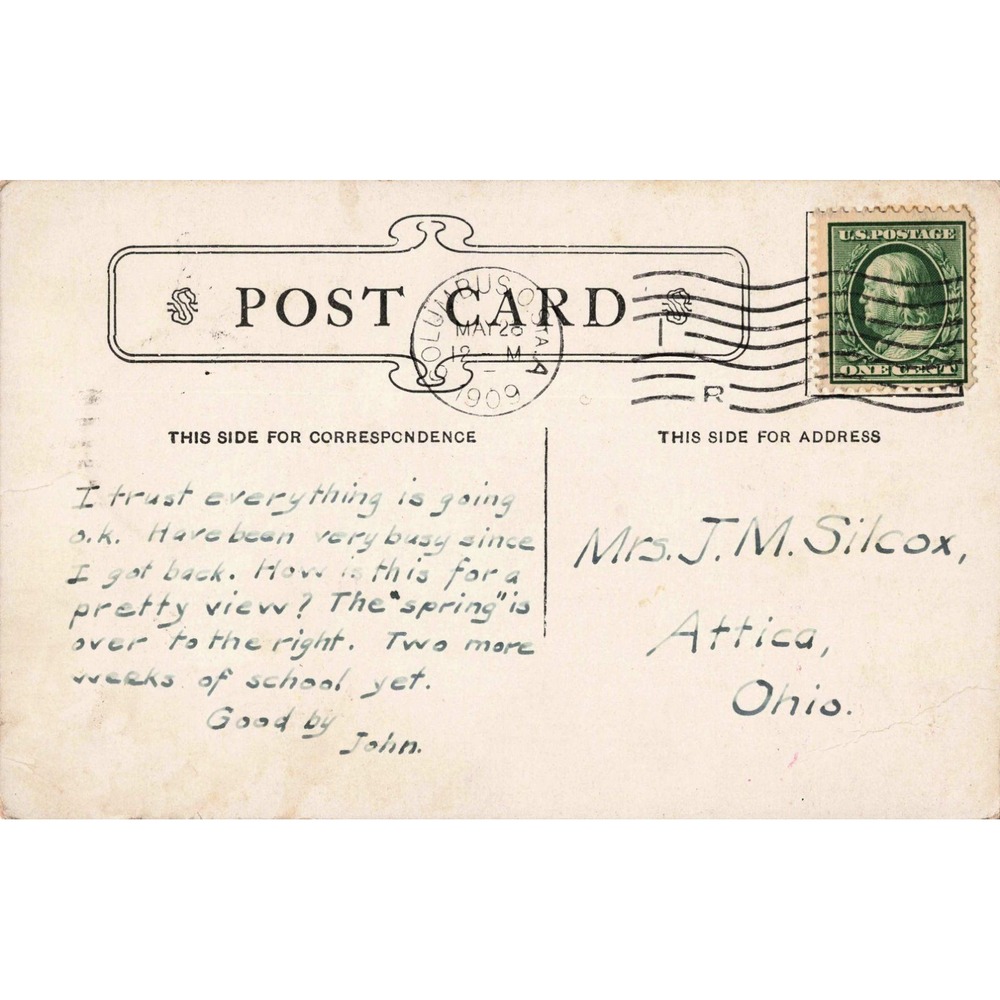 POST CARD
COLUMBUS, O. STA. A
MAY 28
12 — M
1909
R
U.S. POSTAGE
ONE CENT
THIS SIDE FOR CORRESPONDENCE
THIS SIDE FOR ADDRESS
I trust everything is going
o.k. Have been very busy since
I got back. How is this for a
pretty view? The "spring" is
over to the right. Two more
weeks of school yet.
Good by
John.
Mrs. J. M. Silcox,
Attica,
Ohio.